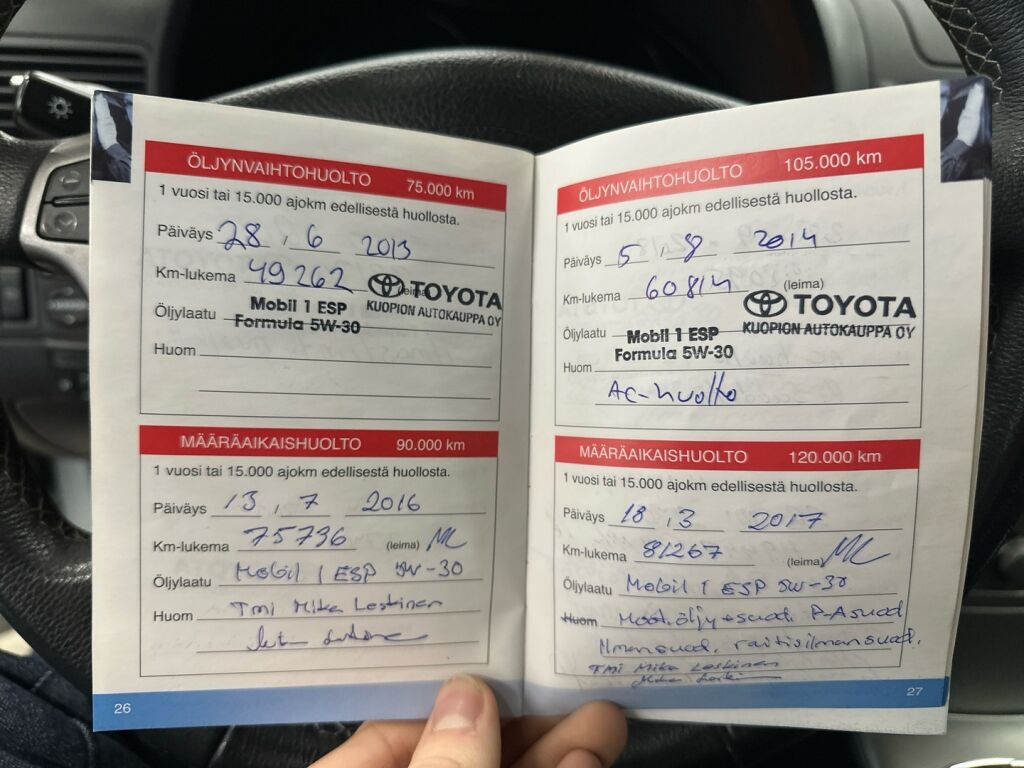 ÖLJYNVAIHTOHUOLTO 75.000 km
1 vuosi tai 15.000 ajokm edellisestä huollosta.
Päiväys 28 . 6 2013
Km-lukema 49262 (leima)
TOYOTA
KUOPION AUTOKAUPPA OY
Öljylaatu Mobil 1 ESP
Formula 5W-30
Huom
MÄÄRÄAIKAISHUOLTO 90.000 km
1 vuosi tai 15.000 ajokm edellisestä huollosta.
Päiväys 13 . 7 2016
Km-lukema 75736 (leima)
Öljylaatu Mobil 1 ESP 5W-30
Huom Tmi Mika Leskinen
26
ÖLJYNVAIHTOHUOLTO 105.000 km
1 vuosi tai 15.000 ajokm edellisestä huollosta.
Päiväys 5 . 8 2014
Km-lukema 60814 (leima)
TOYOTA
KUOPION AUTOKAUPPA OY
Öljylaatu Mobil 1 ESP
Formula 5W-30
Huom
AC-huolto
MÄÄRÄAIKAISHUOLTO 120.000 km
1 vuosi tai 15.000 ajokm edellisestä huollosta.
Päiväys 18 . 3 2017
Km-lukema 81267 (leima)
Öljylaatu Mobil 1 ESP 5W-30
Huom Moot.öljy+suod. P-Asuod
Ilmansuod, raitisilmansuod,
TMI Mika Leskinen
27